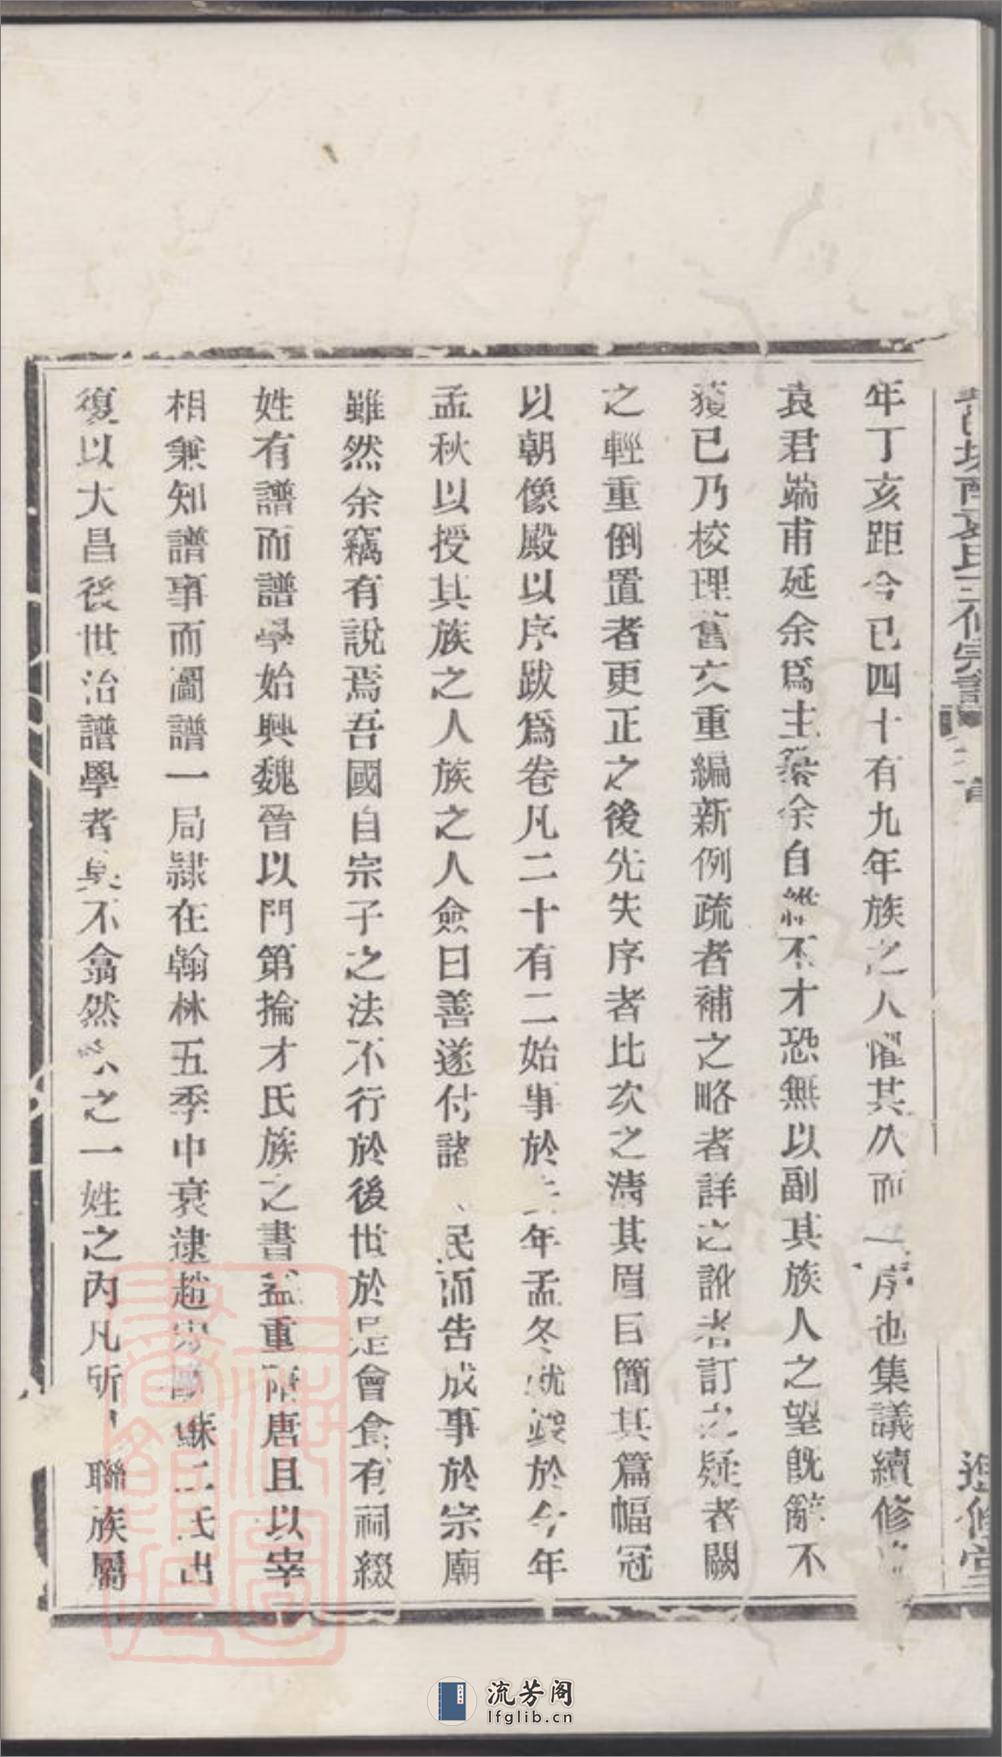 年丁亥距今已四十有九年族之人懼其久而序也集議續修
袁君端甫延余爲主纂余自維不才恐無以副其族人之望既辭不
獲已乃校理舊文重編新例疏者補之略者詳之訛者訂之疑者闕
之輕重倒置者更正之後先失序者比次之清其眉目簡其篇幅冠
以朝像殿以序跋爲卷凡二十有二始事於年孟冬就竣於今年
孟秋以授其族之人族之人僉曰善遂付諸民而告成事於宗廟
雖然余竊有說焉吾國自宗子之法不行於後世於是會食有祠綴
姓有譜而譜學始興魏晉以門第掄才氏族之書益重隋唐且以宰
相兼知譜事而圖譜一局隸在翰林五季中衰逮趙宋歐蘇二氏出
復以大昌後世治譜學者莫不翕然宗之一姓之內凡所聯族屬
氏三修宗譜
卷首
進修堂
流芳阁
lfglib.cn